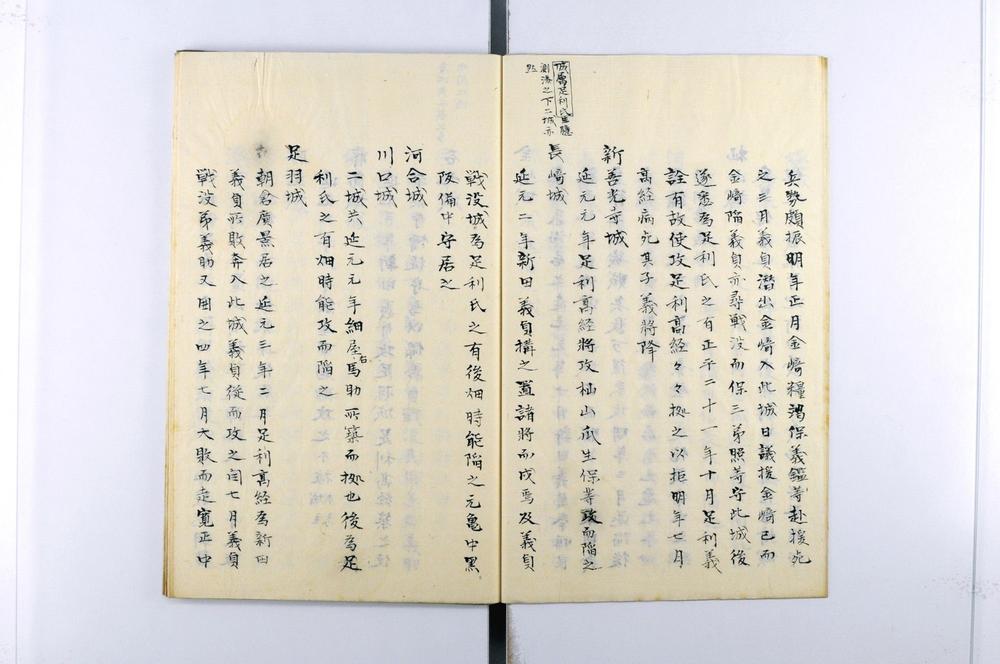 兵勢頗振明年正月金﨑糧渇保義鑑等赴援死
之三月義貞潜出金﨑入此城日議援金﨑已而
金﨑陥義貞亦尋戦没而保三弟照等守此城後
遂悉為足利氏之有正平二十一年十月足利義
詮有故使攻足利高経々々拠之以拒明年七月
高経病死其子義将降
新善光寺城
延元元年足利高経将攻杣山瓜生保等攻而陥之
長﨑城
延元二年新田義貞搆之置諸将而戍焉及義貞
城属足利氏
渕湊之下二城亦
戦没城為足利氏之有後畑時能陥之元亀中黒
阪備中守居之
河合城
川口城
二城共延元元年細屋右馬助所築而拠也後為足
利氏之有畑時能攻而陥之
足羽城
朝倉廣景居之延元三年二月足利高経為新田
義貞所敗奔入此城義貞従而攻之閏七月義貞
戦没弟義助又囲之四年七月大敗而走寛正中